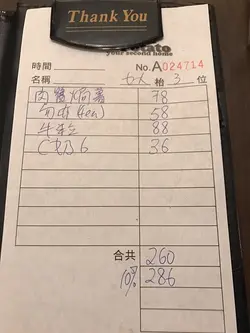 Thank You
tato
your second home
時間
No. A 024714
名稱 6大 枱 3 位
肉醬焗薯 78
(ten) 58
牛 88
C奶6 36
合共 260
10% 286